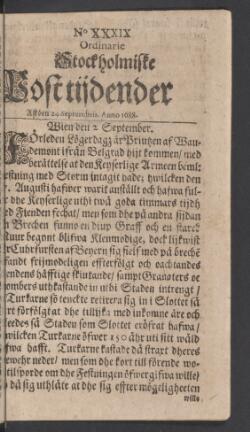 No XXXIX
Ordinarie
Stockholmiske
Posttijdender
Aff den 24 Septembris. Anno 1688.
Wien den 2 September.
FÖrleden Lögerdagz är Printzen af Wau-
demont ifrån Belgrad hijt kommen/ med
berättelse at den Keyserlige Armeen bemelte
estning med Storm intagit hade; hwilcken den
. Augusti hafwer warit anstält och hafwa ful-
dhe Keyserlige uthi twå goda timmars tijdh
ed Fienden fechtat/ men som dhe på andra sijdan
n Brechen funno en diup Graff och en starck
uur begynt blifwa Klenmodige, dock lijkwist
r Curfursten af Beyern sig sielf med på breche
fandt frijmodeligen effterfölgt och oachtandes
iendens häfftige skiutande/ sampt Granaters oc
ombers uthkastande in uthi Staden intrengt/
Turkarne sö tenckte retirera sig in i Slottet så
re förfölgt at dhe tillijka med inkomne äre och
ledes så Staden som Slottet eröfrat hafwa/
wilcken Turkarne öfwer 150 åhr uti sitt wåld
wa hafft. Turkarne kastade då straxt dheres
ewehr neder/ men som dhe kort till förende wo-
till sporde om dhe Festningen öfwergifwa wille/
då sig uthläte at dhe sig effter mögligheten
wille